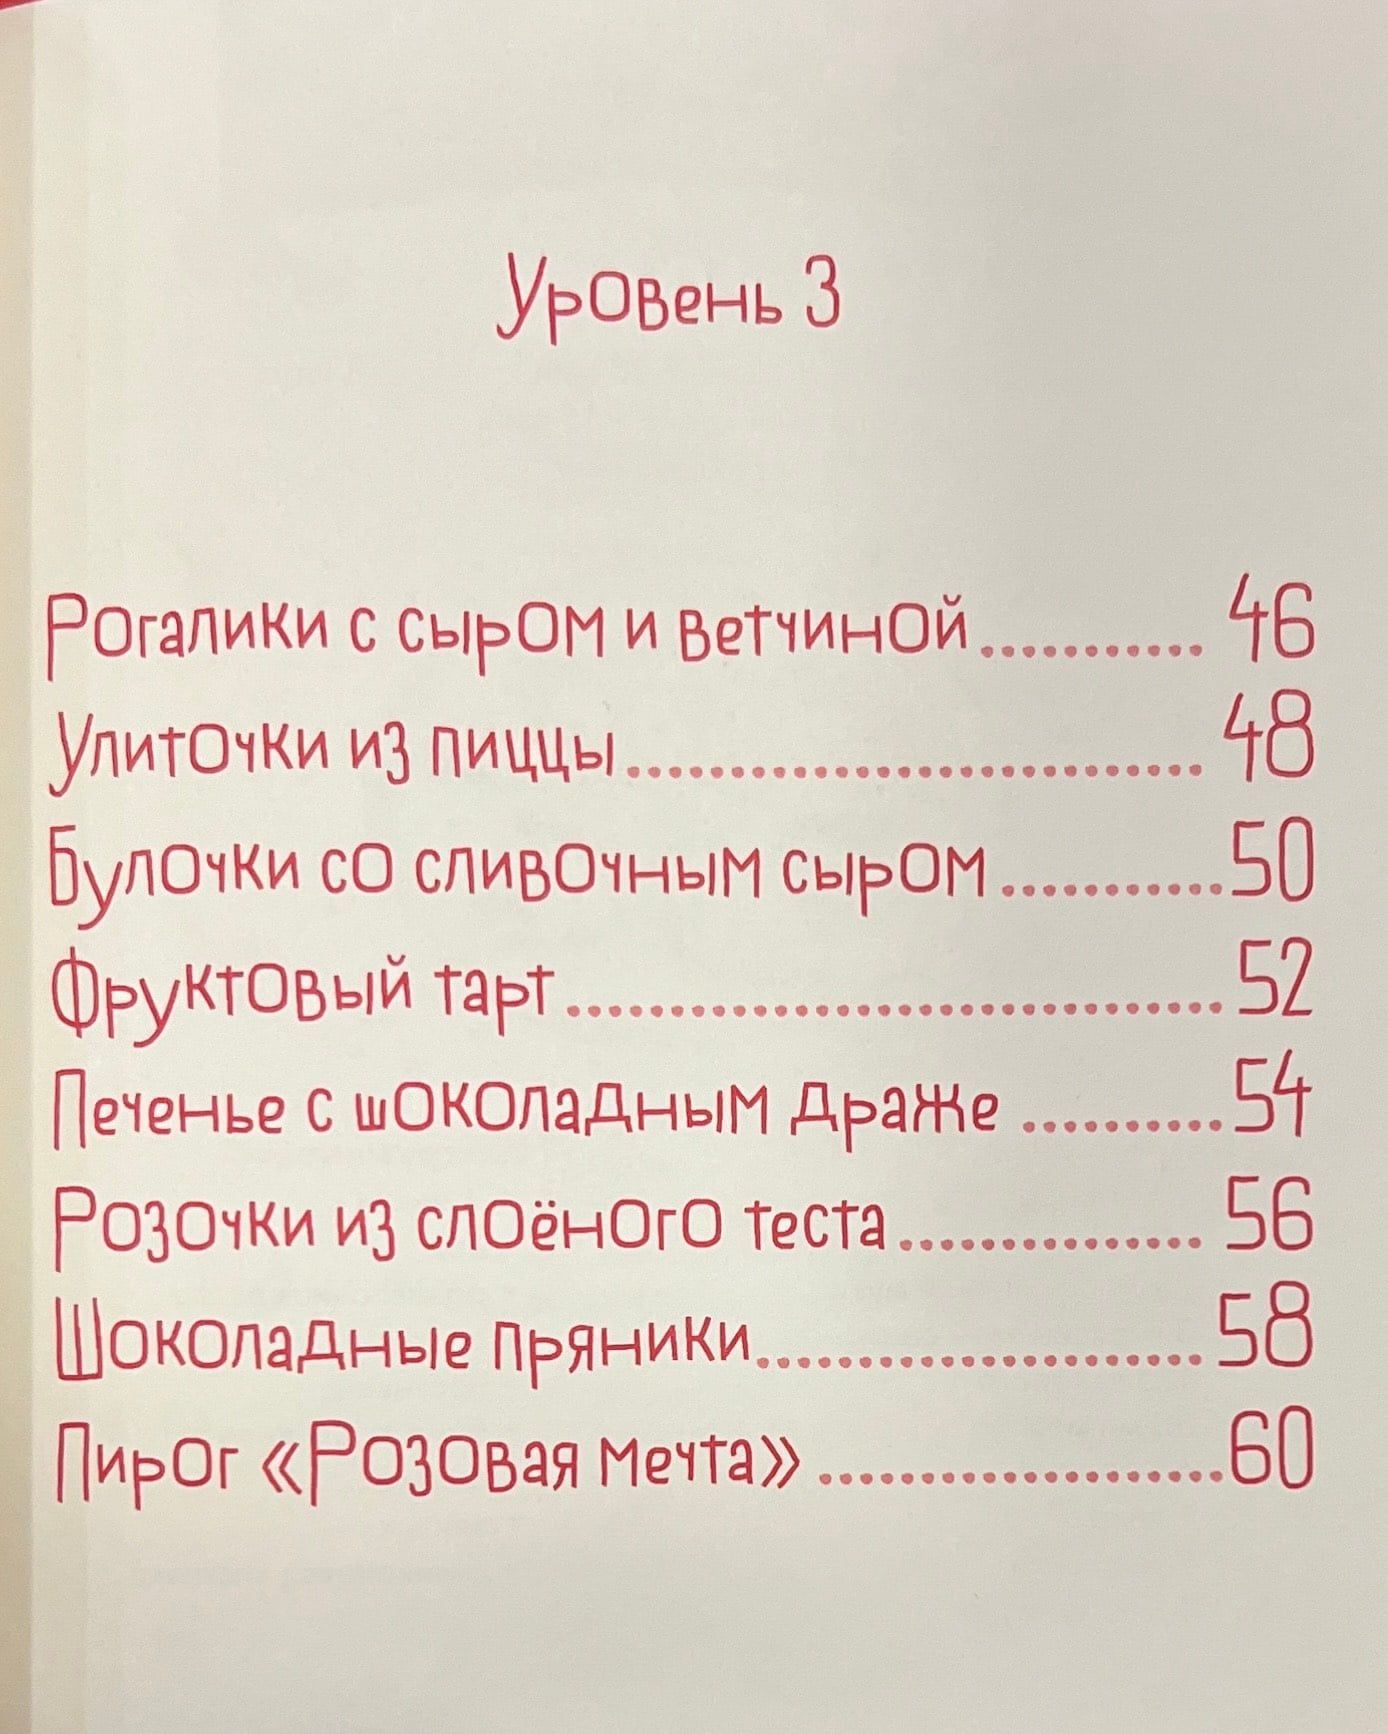 Уровень 3
Рогалики с сыром и ветчиной........... 46
Улиточки из пиццы............................ 48
Булочки со сливочным сыром...........50
Фруктовый тарт................................52
Печенье с шоколадным драже ..........54
Розочки из слоёного теста............... 56
Шоколадные пряники...................... 58
Пирог «Розовая мечта» ....................60